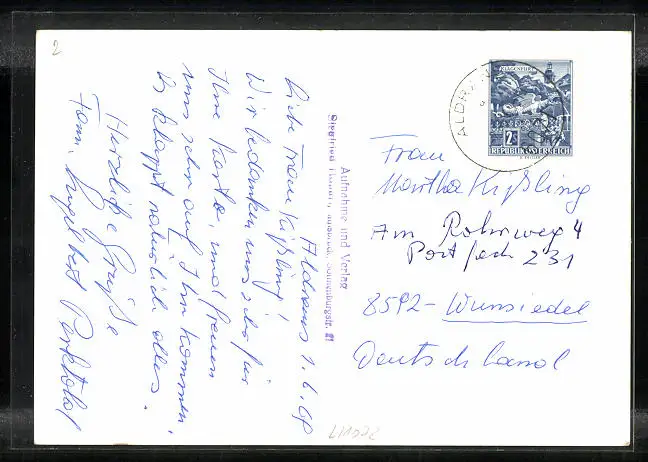 2
Aldrans 1.6.68
Liebe Frau Kißling!
Wir bedanken uns sehr für
Ihre Karte, und freuen
uns sehr auf Ihr Kommen,
Es klappt natürlich alles.
Herzliche Grüße
Fam. Engelbert
Aufnahme und Verlag
Siegfried Innsbruck, Sonnenburgstr. 21
KLAGENFURT
2S
REPUBLIK ÖSTERREICH
ALDRANS
Frau
Martha Kißling
Am Rohrweg 4
Postfach 231
8592-Wunsiedel
Deutschland